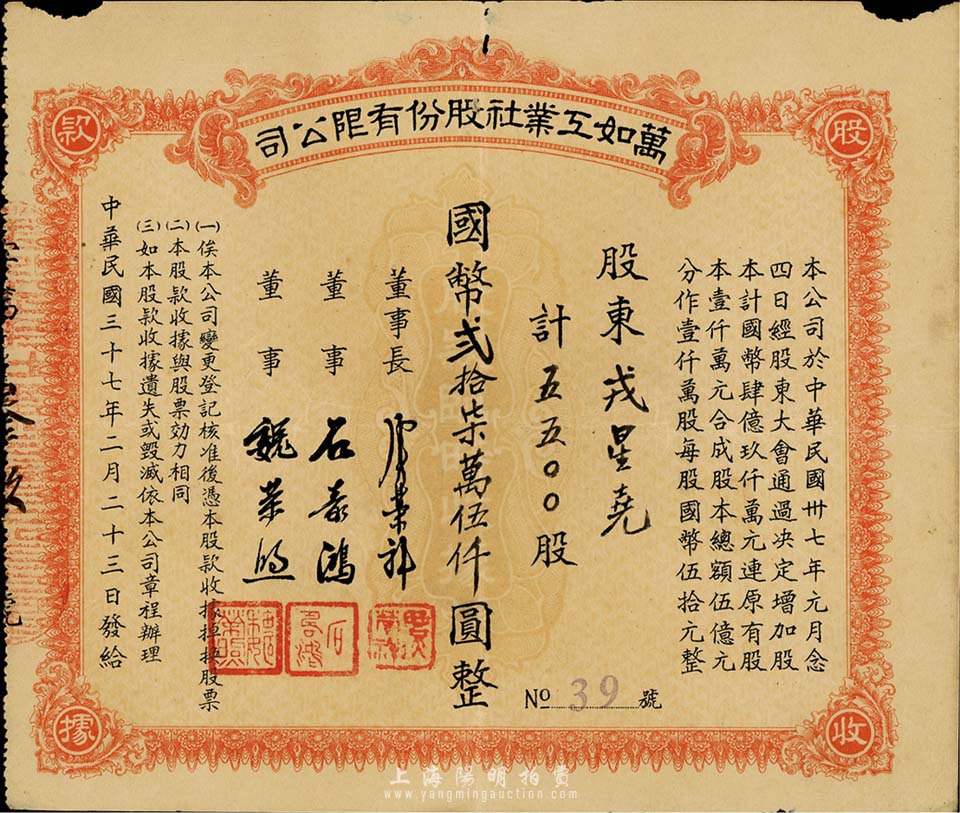 萬如工業社股份有限公司
股
款
收
據
本公司於中華民國卅七年元月念
四日經股東大會通過決定增加股
本計國幣肆億玖仟萬元連原有股
本壹仟萬元合成股本總額伍億元
分作壹仟萬股每股國幣伍拾元整
股東戎星堯
計五五〇〇股
國幣貳拾柒萬伍仟圓整
董事長
董事 石泰鴻
董事 魏荣照
㈠俟本公司變更登記核准後憑本股款收據掉換股票
㈡本股款收據與股票効力相同
㈢如本股款收據遺失或毀滅依本公司章程辦理
中華民國三十七年二月二十三日發給
No 39 號
上海陽明拍賣
www.yangmingauction.com